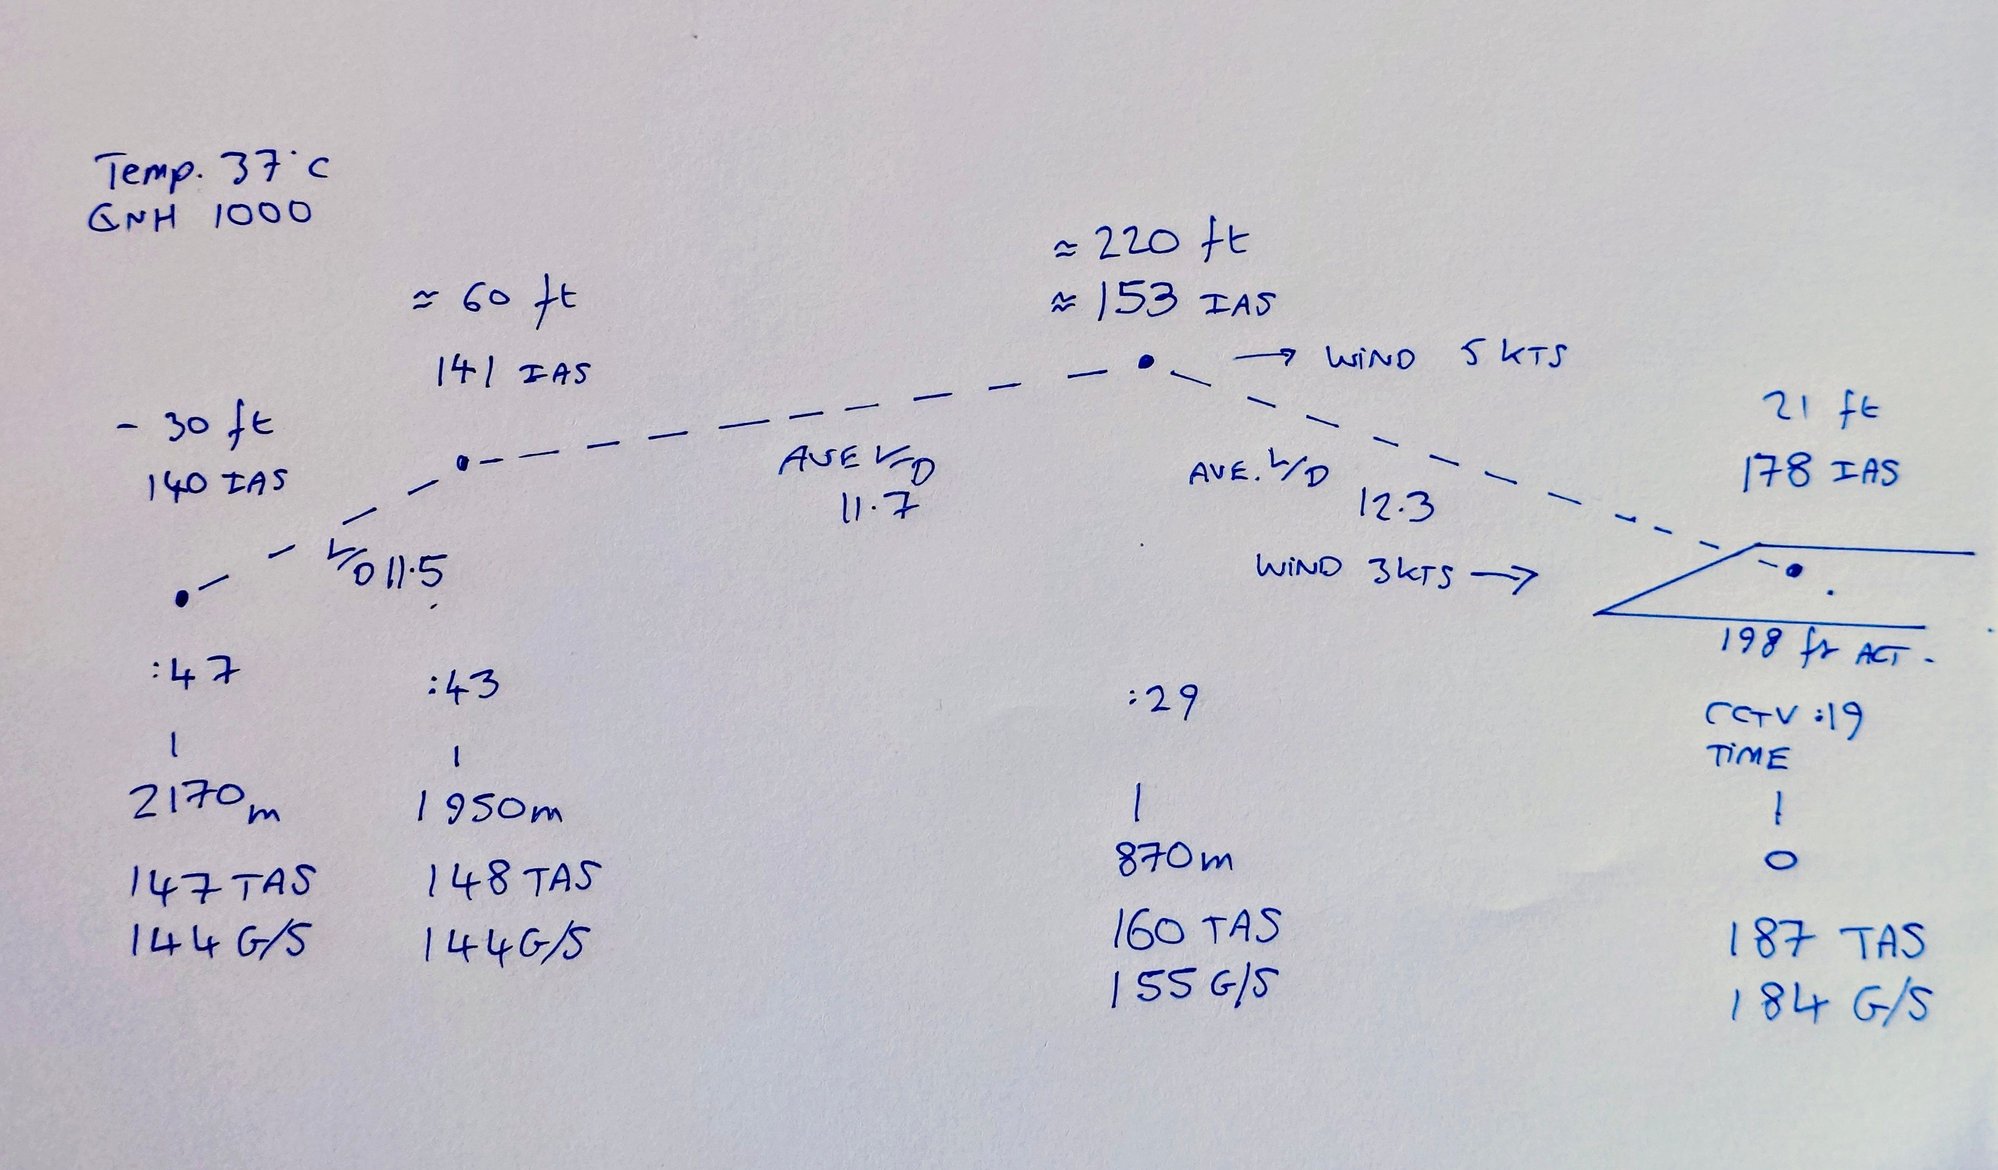 Temp. 37°C
QNH 1000
≈ 220 ft
≈ 153 IAS
→ WIND 5 KTS
≈ 60 ft
141 IAS
- 30 ft
140 IAS
21 ft
178 IAS
AVE L/D
11.7
AVE. L/D
12.3
L/D 11.5
WIND 3KTS →
198 ft ACT.
:47
2170m
147 TAS
144 G/S
:43
1950m
148 TAS
144 G/S
:29
870m
160 TAS
155 G/S
CCTV :19
TIME
0
187 TAS
184 G/S